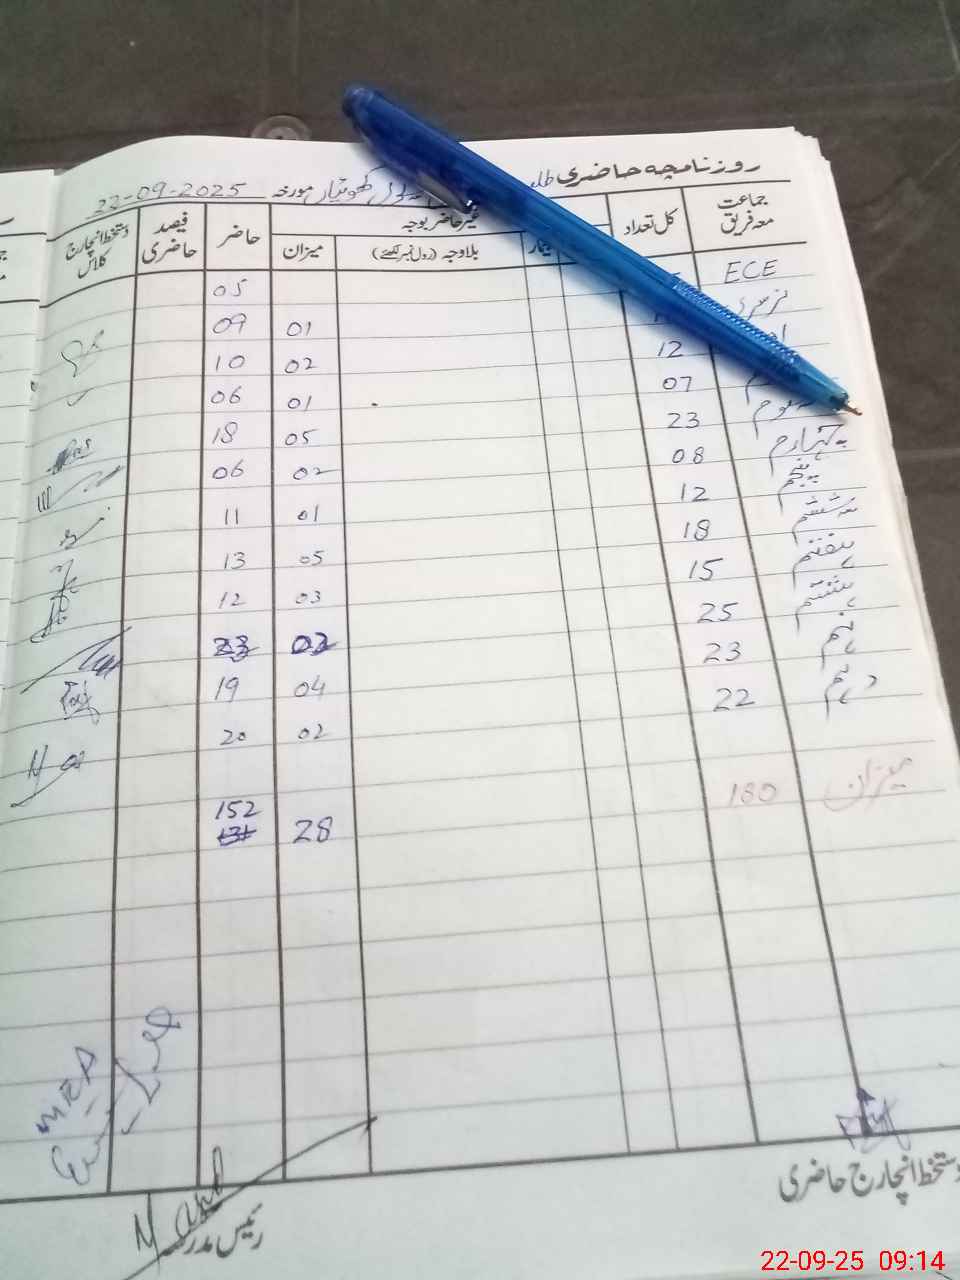 روزنامچہ حاضری طلبہ
مورخہ 22-09-2025
جماعت معہ فریق کل تعداد غیر حاضر بوجہ حاضر فیصد حاضری دستخط انچارج کلاس
بیمار بلاوجہ (رول نمبر لکھئے) میزان
ECE 05
نرسری 01 09
12 02 10
07 01 06
23 05 18
چہارم 08 02 06
پنجم 12 01 11
ششم 18 05 13
ہفتم 15 03 12
ہشتم 25 02 23
نہم 23 04 19
دہم 22 02 20
میزان 180 28 152
131
دستخط انچارج حاضری
رئیس مدرسہ
22-09-25 09:14